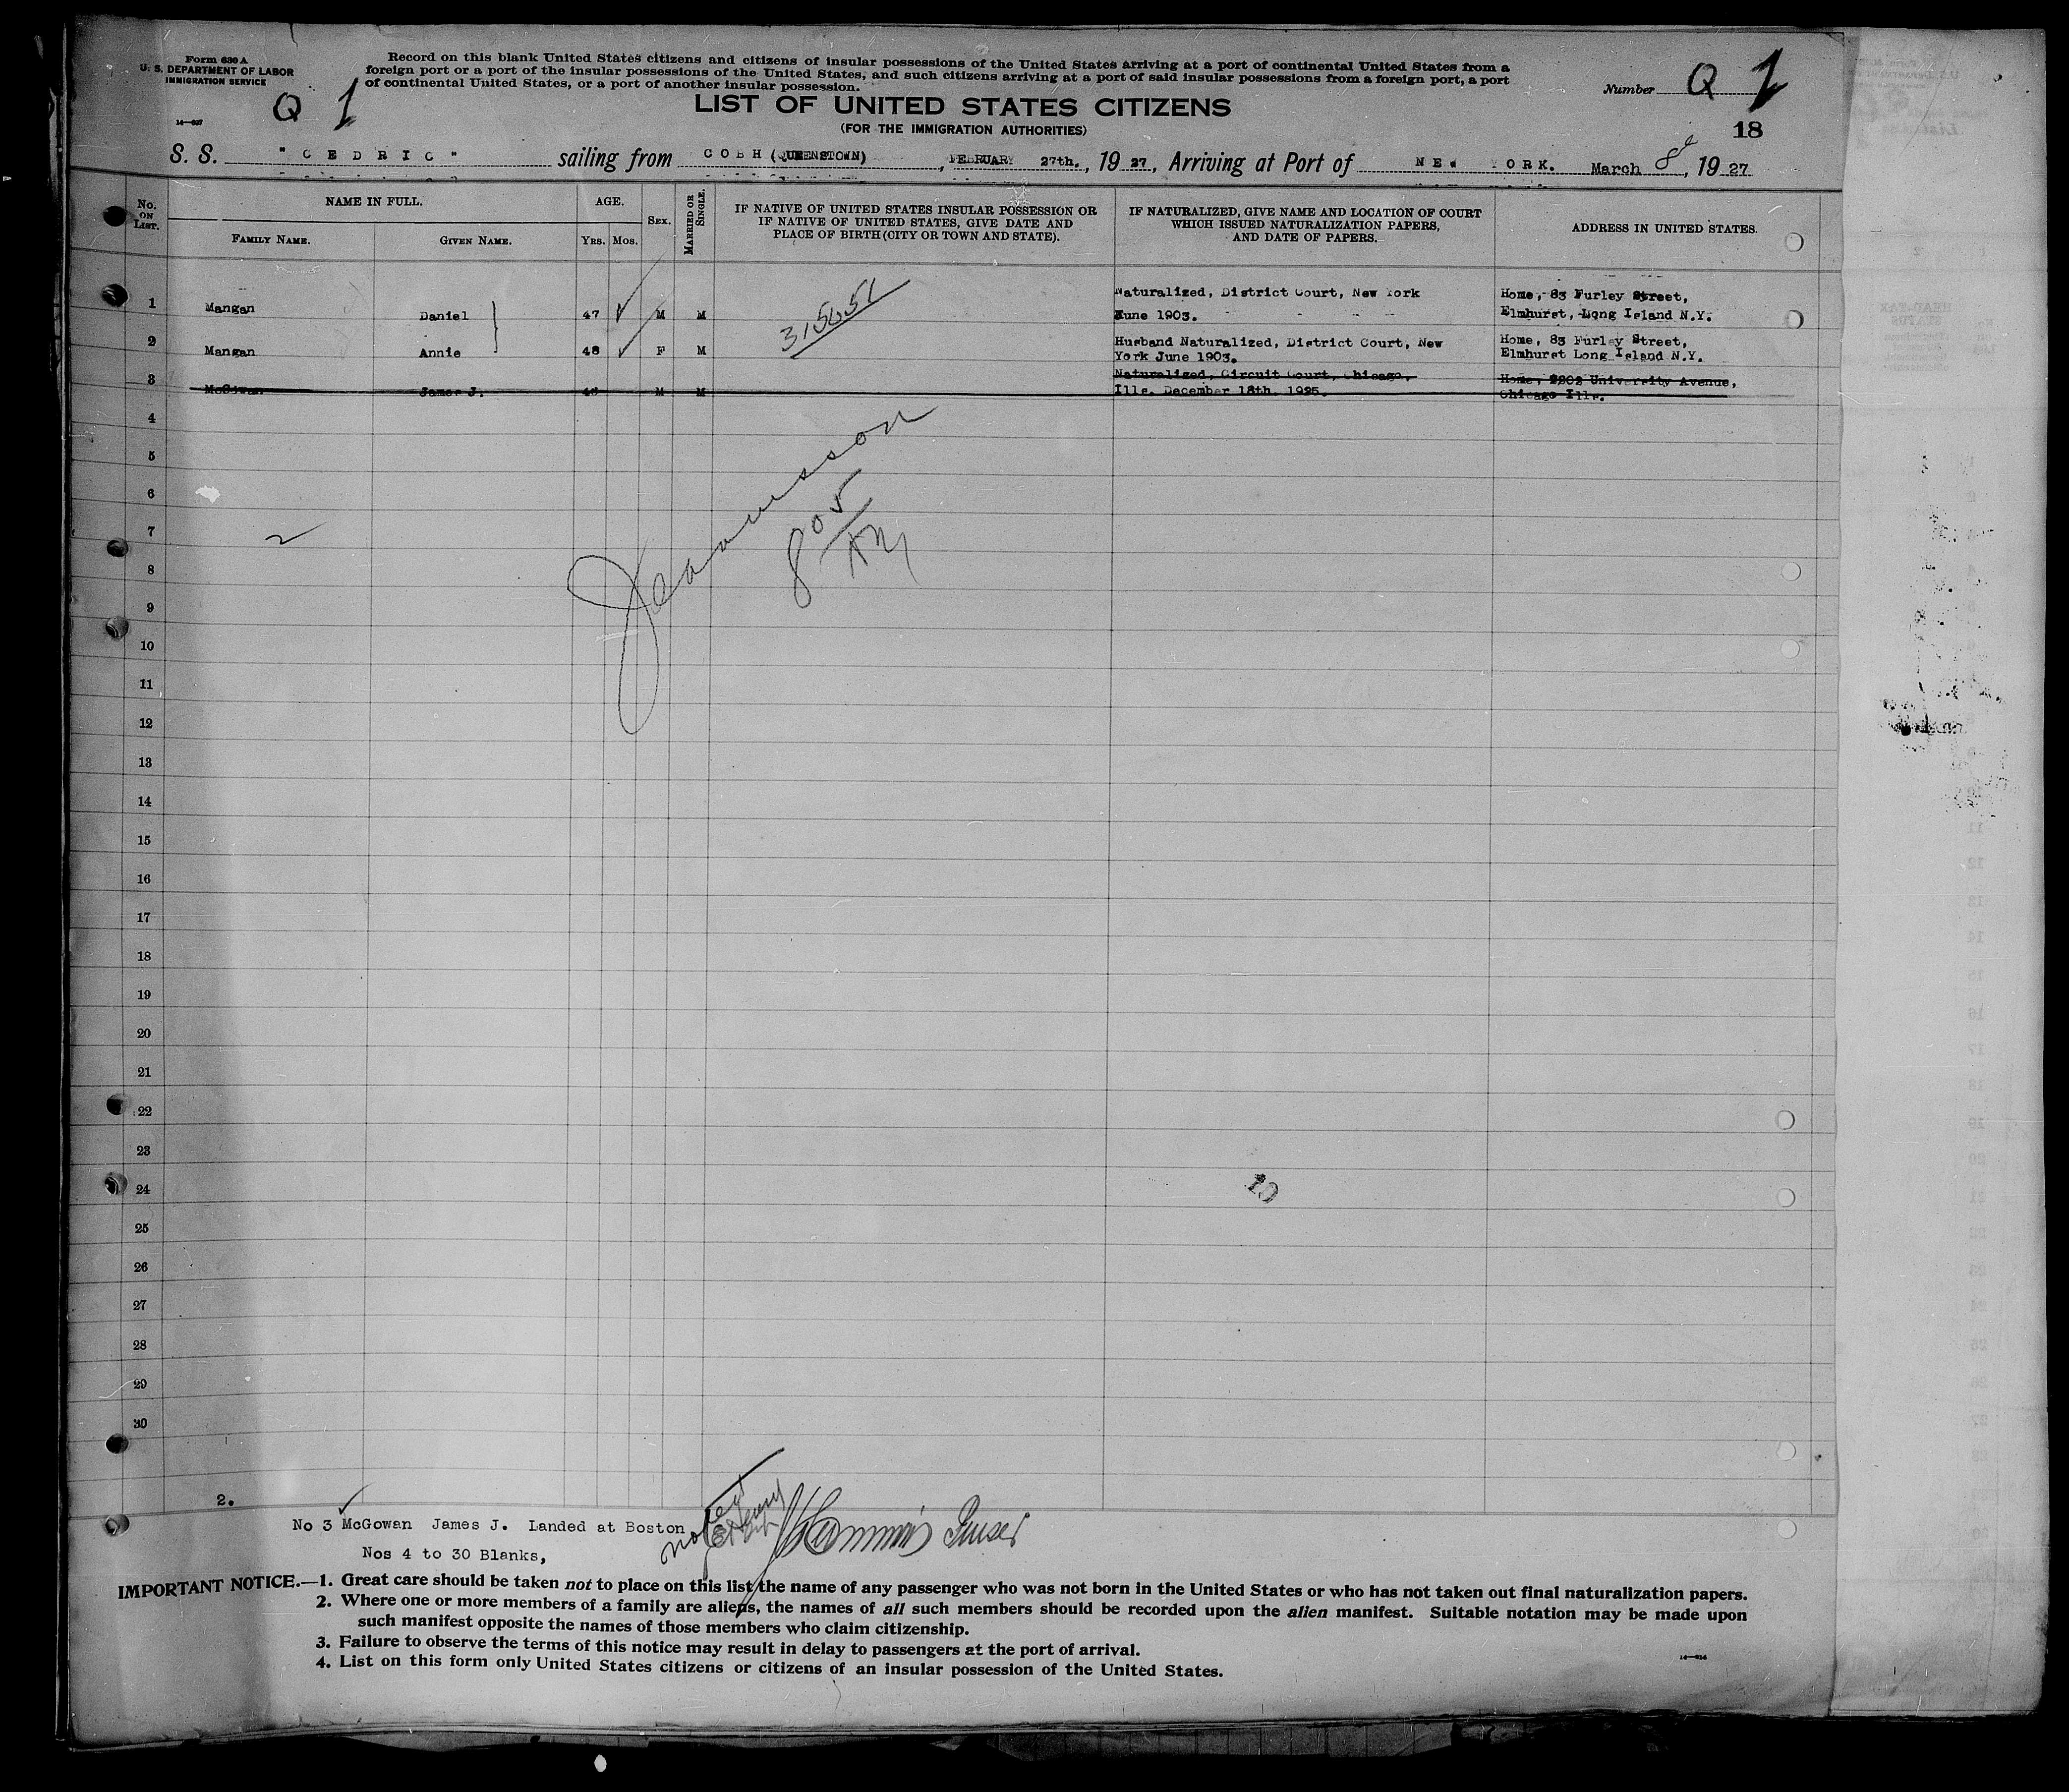 Form 630 A
U. S. DEPARTMENT OF LABOR
IMMIGRATION SERVICE
Record on this blank United States citizens and citizens of insular possessions of the United States arriving at a port of continental United States from a
foreign port or a port of the insular possessions of the United States, and such citizens arriving at a port of said insular possessions from a foreign port, a port
of continental United States, or a port of another insular possession.
Q 1
Number Q 1
LIST OF UNITED STATES CITIZENS
(FOR THE IMMIGRATION AUTHORITIES)
18
S. S. "CEDRIC" sailing from COBH (QUEENSTOWN), FEBRUARY 27th., 1927, Arriving at Port of NEW YORK. March 8, 1927
No. ON LIST.
NAME IN FULL.
FAMILY NAME.
GIVEN NAME.
AGE.
YRS. MOS.
SEX.
MARRIED OR SINGLE.
IF NATIVE OF UNITED STATES INSULAR POSSESSION OR
IF NATIVE OF UNITED STATES, GIVE DATE AND
PLACE OF BIRTH (CITY OR TOWN AND STATE).
IF NATURALIZED, GIVE NAME AND LOCATION OF COURT
WHICH ISSUED NATURALIZATION PAPERS,
AND DATE OF PAPERS.
ADDRESS IN UNITED STATES.
1 Mangan Daniel 47 M M Naturalized, District Court, New York Home, 83 Furley Street,
June 1903. Elmhurst, Long Island N.Y.
2 Mangan Annie 48 F M Husband Naturalized, District Court, New Home, 83 Furley Street,
York June 1903. Elmhurst Long Island N.Y.
3 McGowan James J. M M Naturalized, Circuit Court, Chicago, Home, 2202 University Avenue,
Ills. December 18th. 1925. Chicago Ills.
315651
4
5
6
7
8
9
10
11
12
13
14
15
16
17
18
19
20
21
22
23
24
25
26
27
28
29
30
2
805
10
2.
No 3 McGowan James J. Landed at Boston
Noted
Purser
Nos 4 to 30 Blanks,
IMPORTANT NOTICE.—1. Great care should be taken not to place on this list the name of any passenger who was not born in the United States or who has not taken out final naturalization papers.
2. Where one or more members of a family are aliens, the names of all such members should be recorded upon the alien manifest. Suitable notation may be made upon
such manifest opposite the names of those members who claim citizenship.
3. Failure to observe the terms of this notice may result in delay to passengers at the port of arrival.
4. List on this form only United States citizens or citizens of an insular possession of the United States.